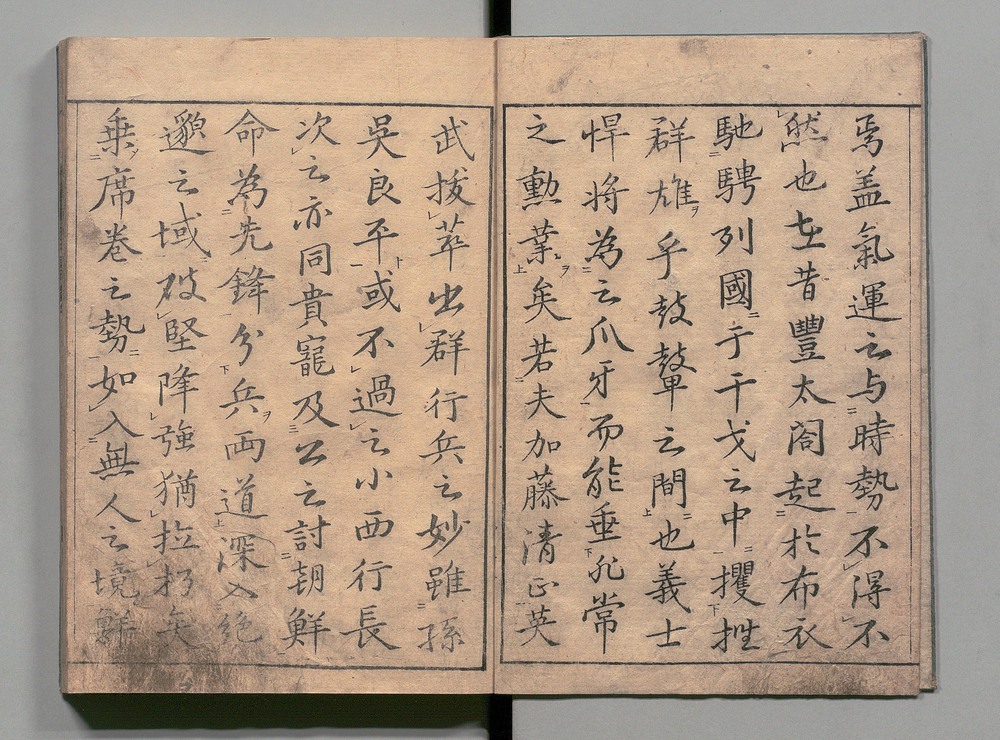 焉盖氣運之与時勢不得不
然也在昔豐太閤起於布衣
馳騁列國于干戈之中攫挫
群雄乎鼓鼙之間也義士
悍将為之爪牙而能垂非常
之勲業矣若夫加藤清正英
武拔萃出群行兵之妙雖孫
吳良平或不過之小西行長
次之亦同貴寵及公之討朝鮮
命為先鋒分兵両道深入絶
邈之域破堅降強猶拉朽矣
乗席巻之勢如入無人之境鮮